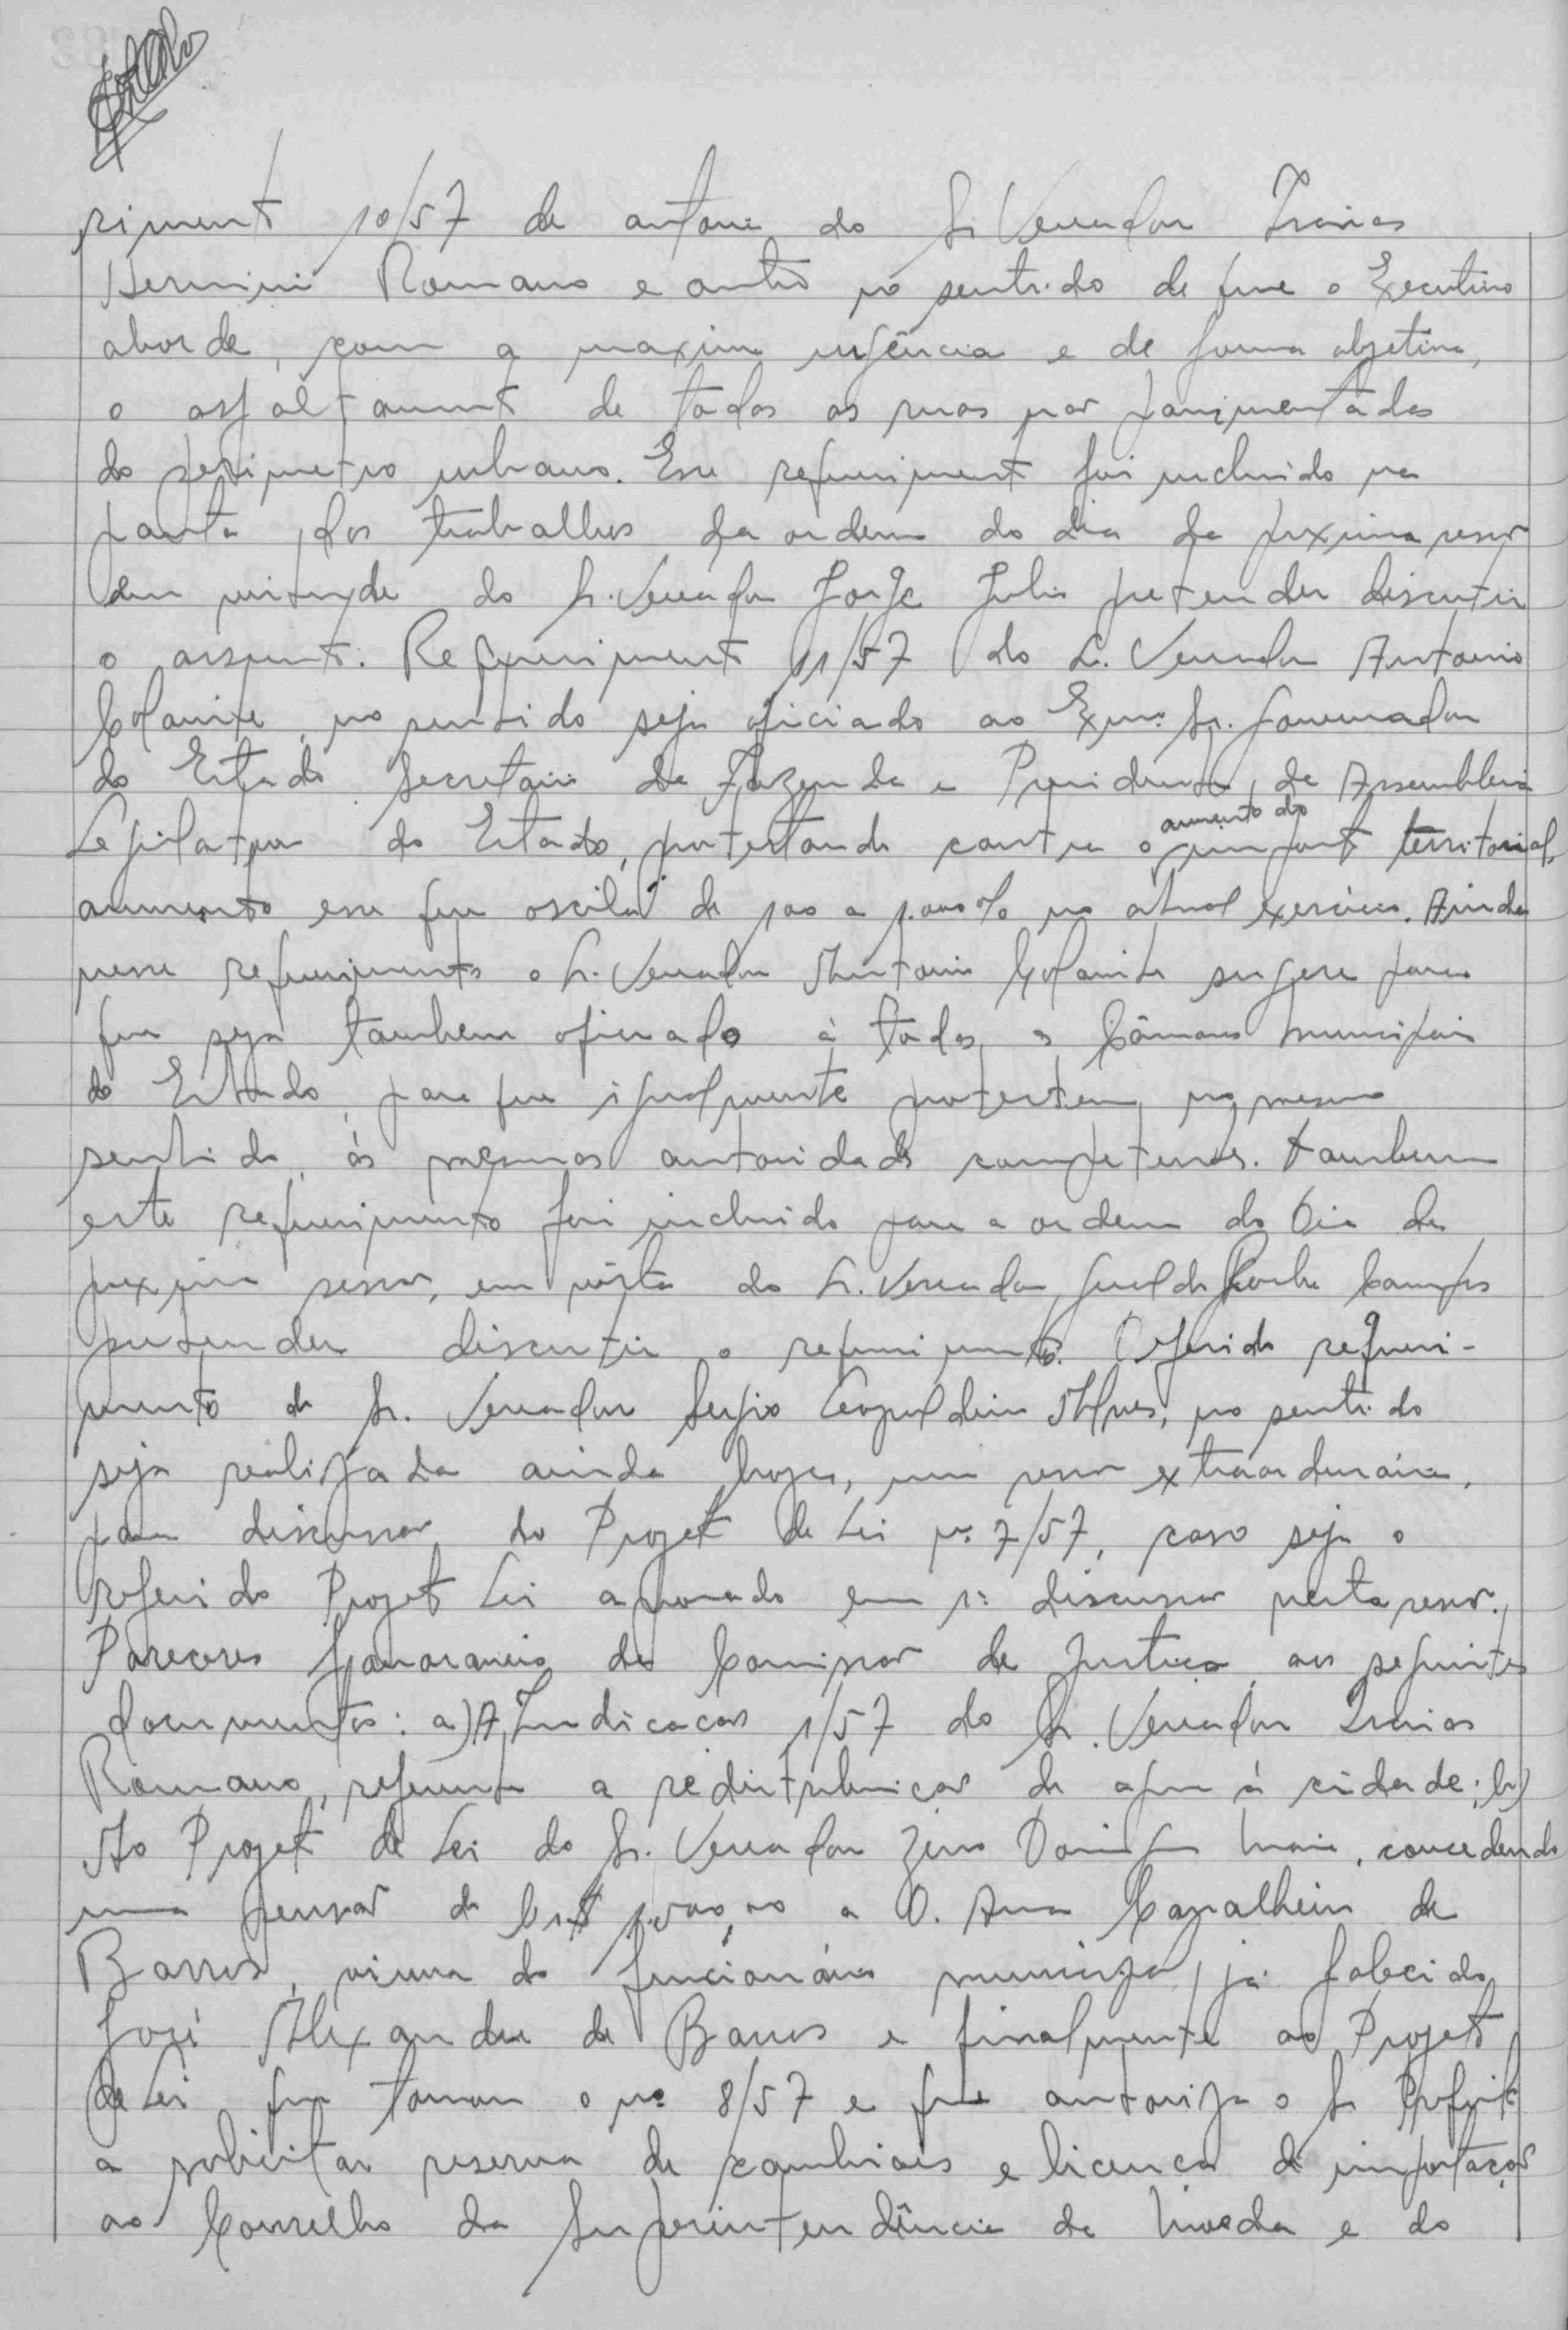 rimento 10/57 de autoria do Sr. Vereador Isaias
Herminio Romano e outro no sentido de que o Executivo
aborde, com a maxima urgência e de forma objetiva,
o asfaltamento de todas as ruas nao pavimentadas
do perimetro urbano. Esse requerimento foi incluido na
pauta dos trabalhos da ordem do dia da proxima sessao
em virtude do Sr. Vereador Jorge Julio pretender discutir
o assunto. Requerimento 11/57 do Sr. Vereador Antonio
no sentido seja oficiado ao Exmo. Sr. Governador
do Estado Secretario da Fazenda e Presidente da Assembleia
Legislativa do Estado, protestando contra o aumento do imposto territorial,
aumento esse que oscila de 100 a 1.000% no atual exercicio. Ainda
nesse requerimento o Sr. Vereador Antonio sugere para
que seja tambem oficiado à todas as Câmaras Municipais
do Estado, para que igualmente protestem, no mesmo
sentido, ás mesmas autoridades competentes. Tambem
este requerimento foi incluido para a ordem do Dia da
proxima sessao, em vista do Sr. Vereador Geraldo Rocha Campos
pretender discutir o requerimento. Deferido requeri-
mento do Sr. Vereador Sergio Leopoldino Alves, no sentido
seja realizada ainda hoje, uma sessao extraordinária,
para discussao do Projeto de Lei nº 7/57, caso seja o
referido Projeto Lei aprovado em 1ª discussao nesta sessao.
Pareceres favoraveis da Comissao de Justiça aos seguintes
documentos: a) A Indicacao 1/57 do Sr. Vereador Isaias
Romano, referente a redistribuicao de agua á cidade; b)
Ao Projeto de Lei do Sr. Vereador Zeno Maia, concedendo
uma pensao de Cr$ 1.500,00 a D. Ana Carvalheiro de
Barros, viuva do funcionário municipal, já falecido
José Alexandre de Barros e finalmente ao Projeto
de Lei que tomou o nº 8/57 e que autoriza o Sr Prefeito
a solicitar reserva de cambiais e licença de importaçao
ao Conselho da Superintendência da Moeda e do